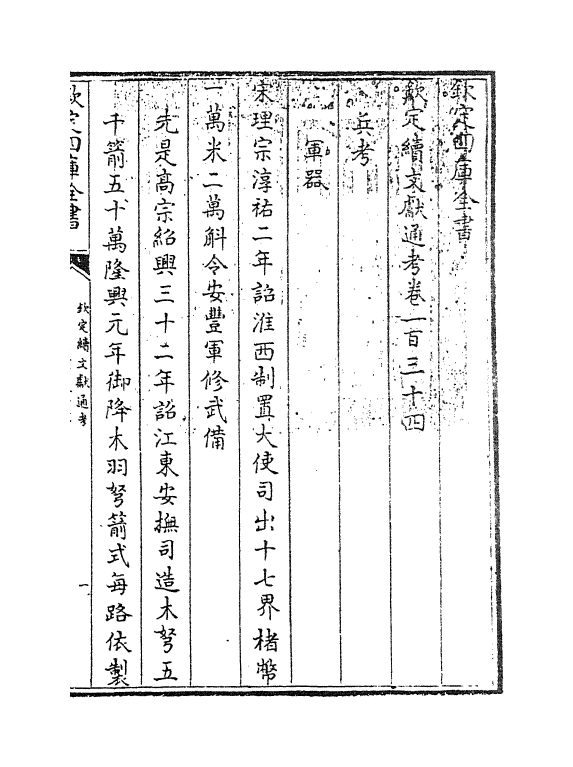 欽定四庫全書
欽定續文獻通考卷一百三十四
兵考
軍器
宋理宗淳祐二年詔淮西制置大使司出十七界楮幣
一萬米二萬斛令安豐軍修武備
先是高宗紹興三十二年詔江東安撫司造木弩五
千箭五十萬隆興元年御降木羽弩箭式每路依製
欽定四庫全書
欽定續文獻通考
一